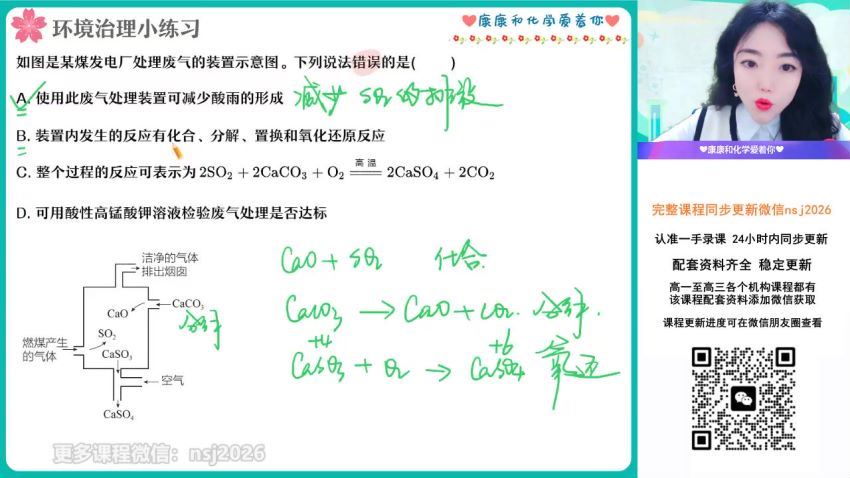 环境治理小练习
❤康康和化学爱着你❤
如图是某煤发电厂处理废气的装置示意图。下列说法错误的是(　　)
A. 使用此废气处理装置可减少酸雨的形成 减少 SO₂ 的排放
B. 装置内发生的反应有化合、分解、置换和氧化还原反应
C. 整个过程的反应可表示为 2SO₂ + 2CaCO₃ + O₂ ══高温══ 2CaSO₄ + 2CO₂
D. 可用酸性高锰酸钾溶液检验废气处理是否达标
洁净的气体
排出烟囱
CaO
CaCO₃
分解
SO₂
燃煤产生
的气体
CaSO₃
空气
CaSO₄
CaO + SO₂ 化合
CaCO₃ → CaO + CO₂ 分解.
+4 +6
CaSO₃ + O₂ → CaSO₄ 氧还
更多课程微信：nsj2026
❤康康和化学爱着你❤
完整课程同步更新微信nsj2026
认准一手录课 24小时内同步更新
配套资料齐全 稳定更新
高一至高三各个机构课程都有
该课程配套资料添加微信获取
课程更新进度可在微信朋友圈查看